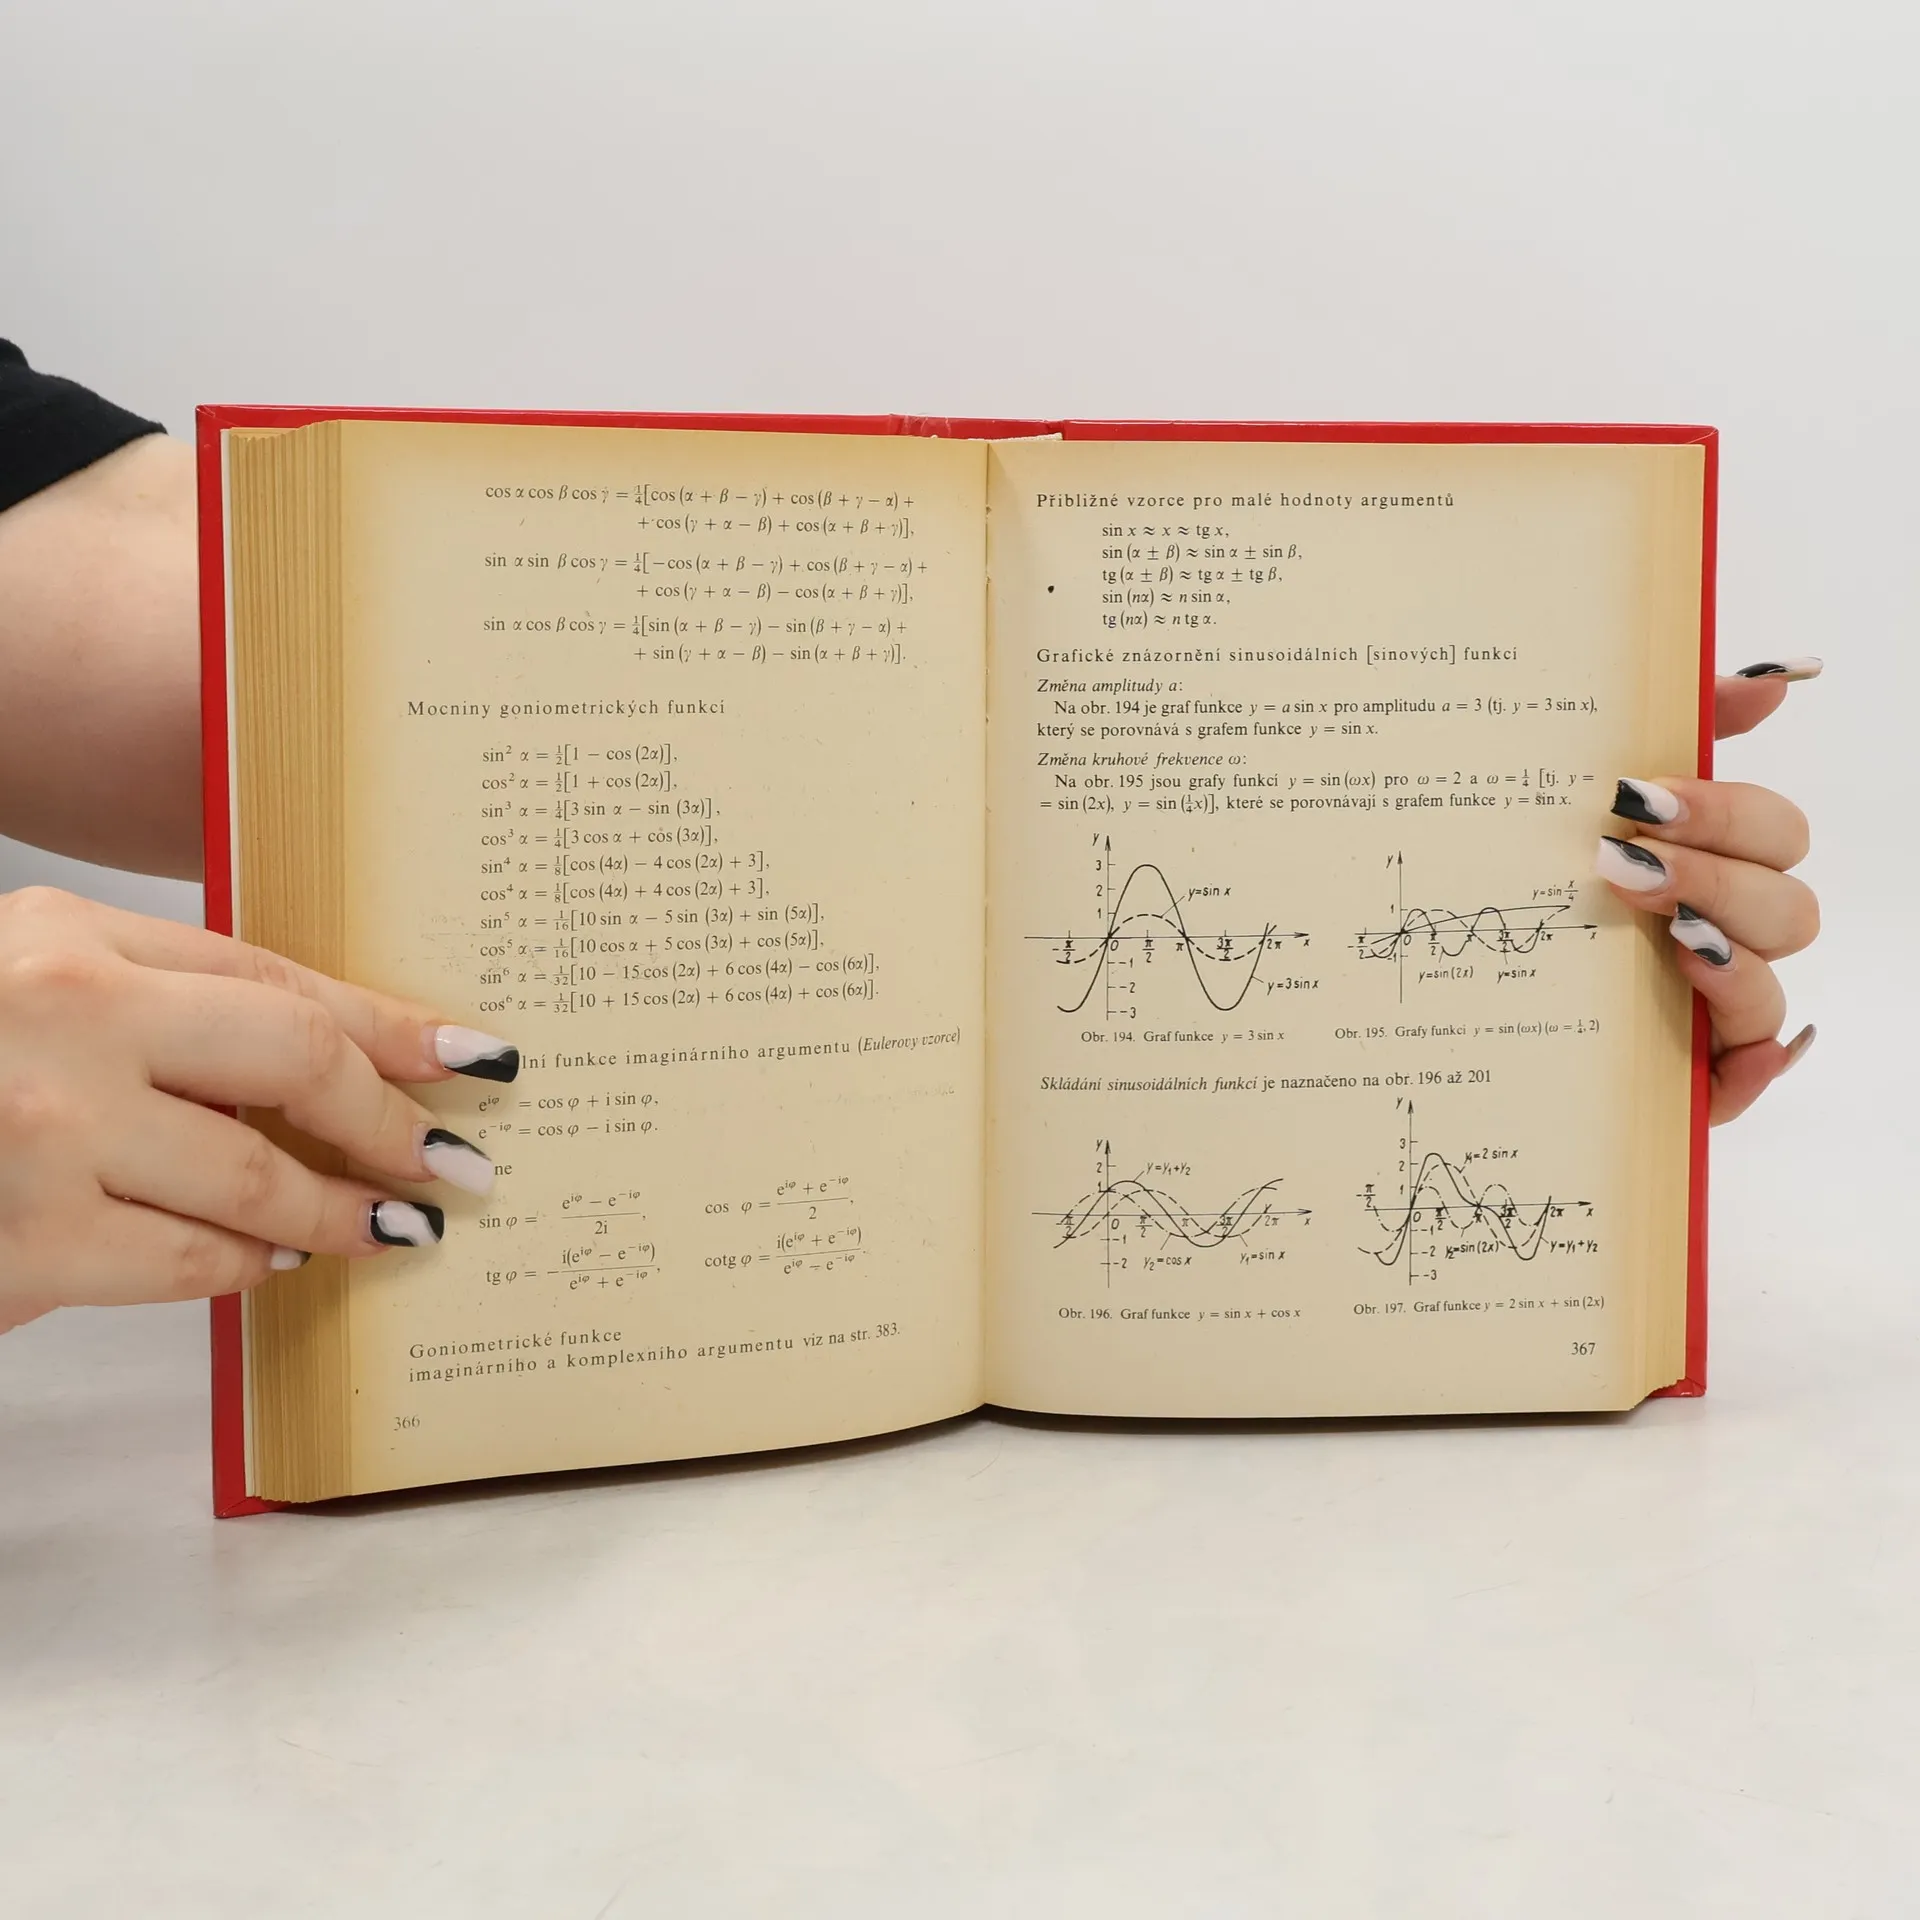 cos α cos β cos γ = 1/4[cos (α + β − γ) + cos (β + γ − α) +
+ cos (γ + α − β) + cos (α + β + γ)],
sin α sin β cos γ = 1/4[−cos (α + β − γ) + cos (β + γ − α) +
+ cos (γ + α − β) − cos (α + β + γ)],
sin α cos β cos γ = 1/4[sin (α + β − γ) − sin (β + γ − α) +
+ sin (γ + α − β) − sin (α + β + γ)].
Mocniny goniometrických funkcí
sin² α = 1/2[1 − cos (2α)],
cos² α = 1/2[1 + cos (2α)],
sin³ α = 1/4[3 sin α − sin (3α)],
cos³ α = 1/4[3 cos α + cos (3α)],
sin⁴ α = 1/8[cos (4α) − 4 cos (2α) + 3],
cos⁴ α = 1/8[cos (4α) + 4 cos (2α) + 3],
sin⁵ α = 1/16[10 sin α − 5 sin (3α) + sin (5α)],
cos⁵ α = 1/16[10 cos α + 5 cos (3α) + cos (5α)],
sin⁶ α = 1/32[10 − 15 cos (2α) + 6 cos (4α) − cos (6α)],
cos⁶ α = 1/32[10 + 15 cos (2α) + 6 cos (4α) + cos (6α)].
funkce imaginárního argumentu (Eulerovy vzorce)
e^iφ = cos φ + i sin φ,
e^−iφ = cos φ − i sin φ.
sin φ = (e^iφ − e^−iφ)/2i, cos φ = (e^iφ + e^−iφ)/2,
tg φ = −i(e^iφ − e^−iφ)/(e^iφ + e^−iφ), cotg φ = i(e^iφ + e^−iφ)/(e^iφ − e^−iφ).
Goniometrické funkce
imaginárního a komplexního argumentu viz na str. 383.
366
Přibližné vzorce pro malé hodnoty argumentů
sin x ≈ x ≈ tg x,
sin (α ± β) ≈ sin α ± sin β,
tg (α ± β) ≈ tg α ± tg β,
sin (nα) ≈ n sin α,
tg (nα) ≈ n tg α.
Grafické znázornění sinusoidálních [sinových] funkcí
Změna amplitudy a:
Na obr. 194 je graf funkce y = a sin x pro amplitudu a = 3 (tj. y = 3 sin x),
který se porovnává s grafem funkce y = sin x.
Změna kruhové frekvence ω:
Na obr. 195 jsou grafy funkcí y = sin (ωx) pro ω = 2 a ω = 1/4 [tj. y =
= sin (2x), y = sin (1/4x)], které se porovnávají s grafem funkce y = sin x.
y
3
2
1
y=sin x
−π/2 0 π/2 π 3π/2 2π x
−1
−2
−3
y=3 sin x
Obr. 194. Graf funkce y = 3 sin x
y
1
y=sin x/4
−π/2 0 π/2 π 3π/2 2π x
−1
y=sin(2x) y=sin x
Obr. 195. Grafy funkcí y = sin (ωx) (ω = 1/4, 2)
Skládání sinusoidálních funkcí je naznačeno na obr. 196 až 201
y
2
1
y=y₁+y₂
−π/2 0 π/2 π 3π/2 2π x
−1
−2
y₂=cos x y₁=sin x
Obr. 196. Graf funkce y = sin x + cos x
y
3
2
1
y₁=2 sin x
−π/2 0 π/2 π 3π/2 2π x
−1
−2
−3
y₂=sin(2x) y=y₁+y₂
Obr. 197. Graf funkce y = 2 sin x + sin (2x)
367